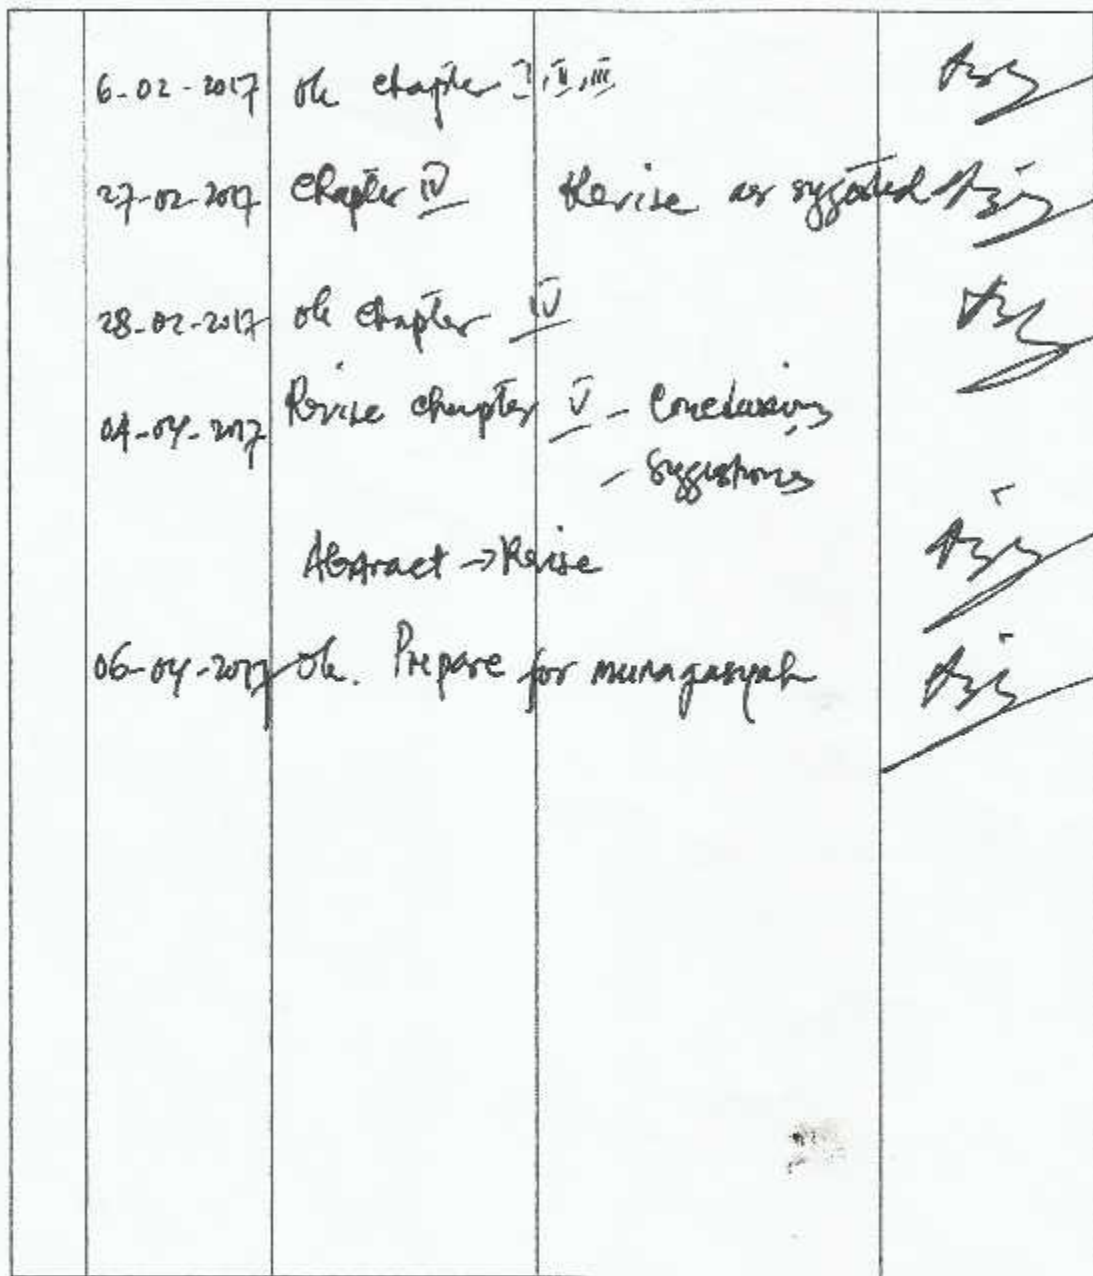 6-02-2017 ok chapter I, II, III
27-02-2017 chapter IV Revise as suggested
28-02-2017 ok chapter IV
04-04-2017 Revise chapter V - Conclusions
- Suggestions
Abstract → Revise
06-04-2017 ok. Prepare for munaqasyah